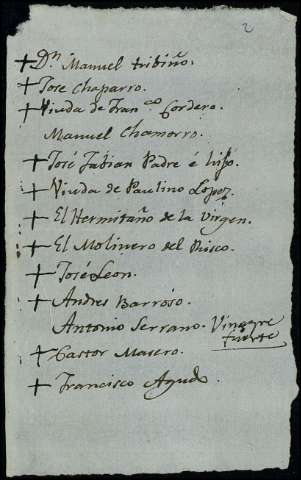 2
+ Dn. Manuel tribiño.
+ Jose Chaparro.
+ Viuda de Franco. Cordero.
Manuel Chamorro.
+ José Fabian Padre é hijo.
+ Viuda de Paulino Lopez.
+ El Hermitaño de la Virgen.
+ El Molinero del Risco.
+ José Leon.
+ Andres Barroso.
Antonio Serrano. Vinagre
fuerte
+ Castor Masero.
+ Francisco Agudo.